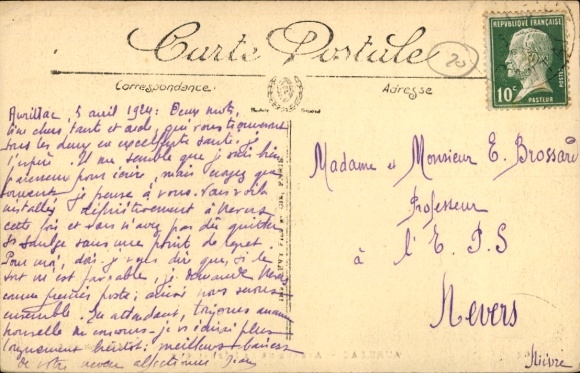 Carte Postale
20
REPUBLIQUE FRANÇAISE
POSTES
10c
PASTEUR
Correspondance
Adresse
Aurillac, 5 avril 1924: Deux mots,
mes chers tante et oncle, qui vous trouveront
tous les deux en excellente santé, je
l'espère. Il me semble que je suis bien
paresseux pour écrire, mais croyez que
souvent je pense à vous. Vous voilà
installés définitivement à Nevers
cette fois et vous n'avez pas dû quitter
St Saulge sans une point de regret.
Pour moi, dois-je vous dire que, si le
sort m'est favorable, je demande Nevers
comme premier poste; ainsi nous serons
ensemble. En attendant, toujours aucune
nouvelle du concours. Je vs écrirai plus
longuement bientôt: meilleurs baisers
de votre neveu affectionné
Madame et Monsieur E. Brossard
Professeur
à l'E.P.S
Nevers
Nièvre